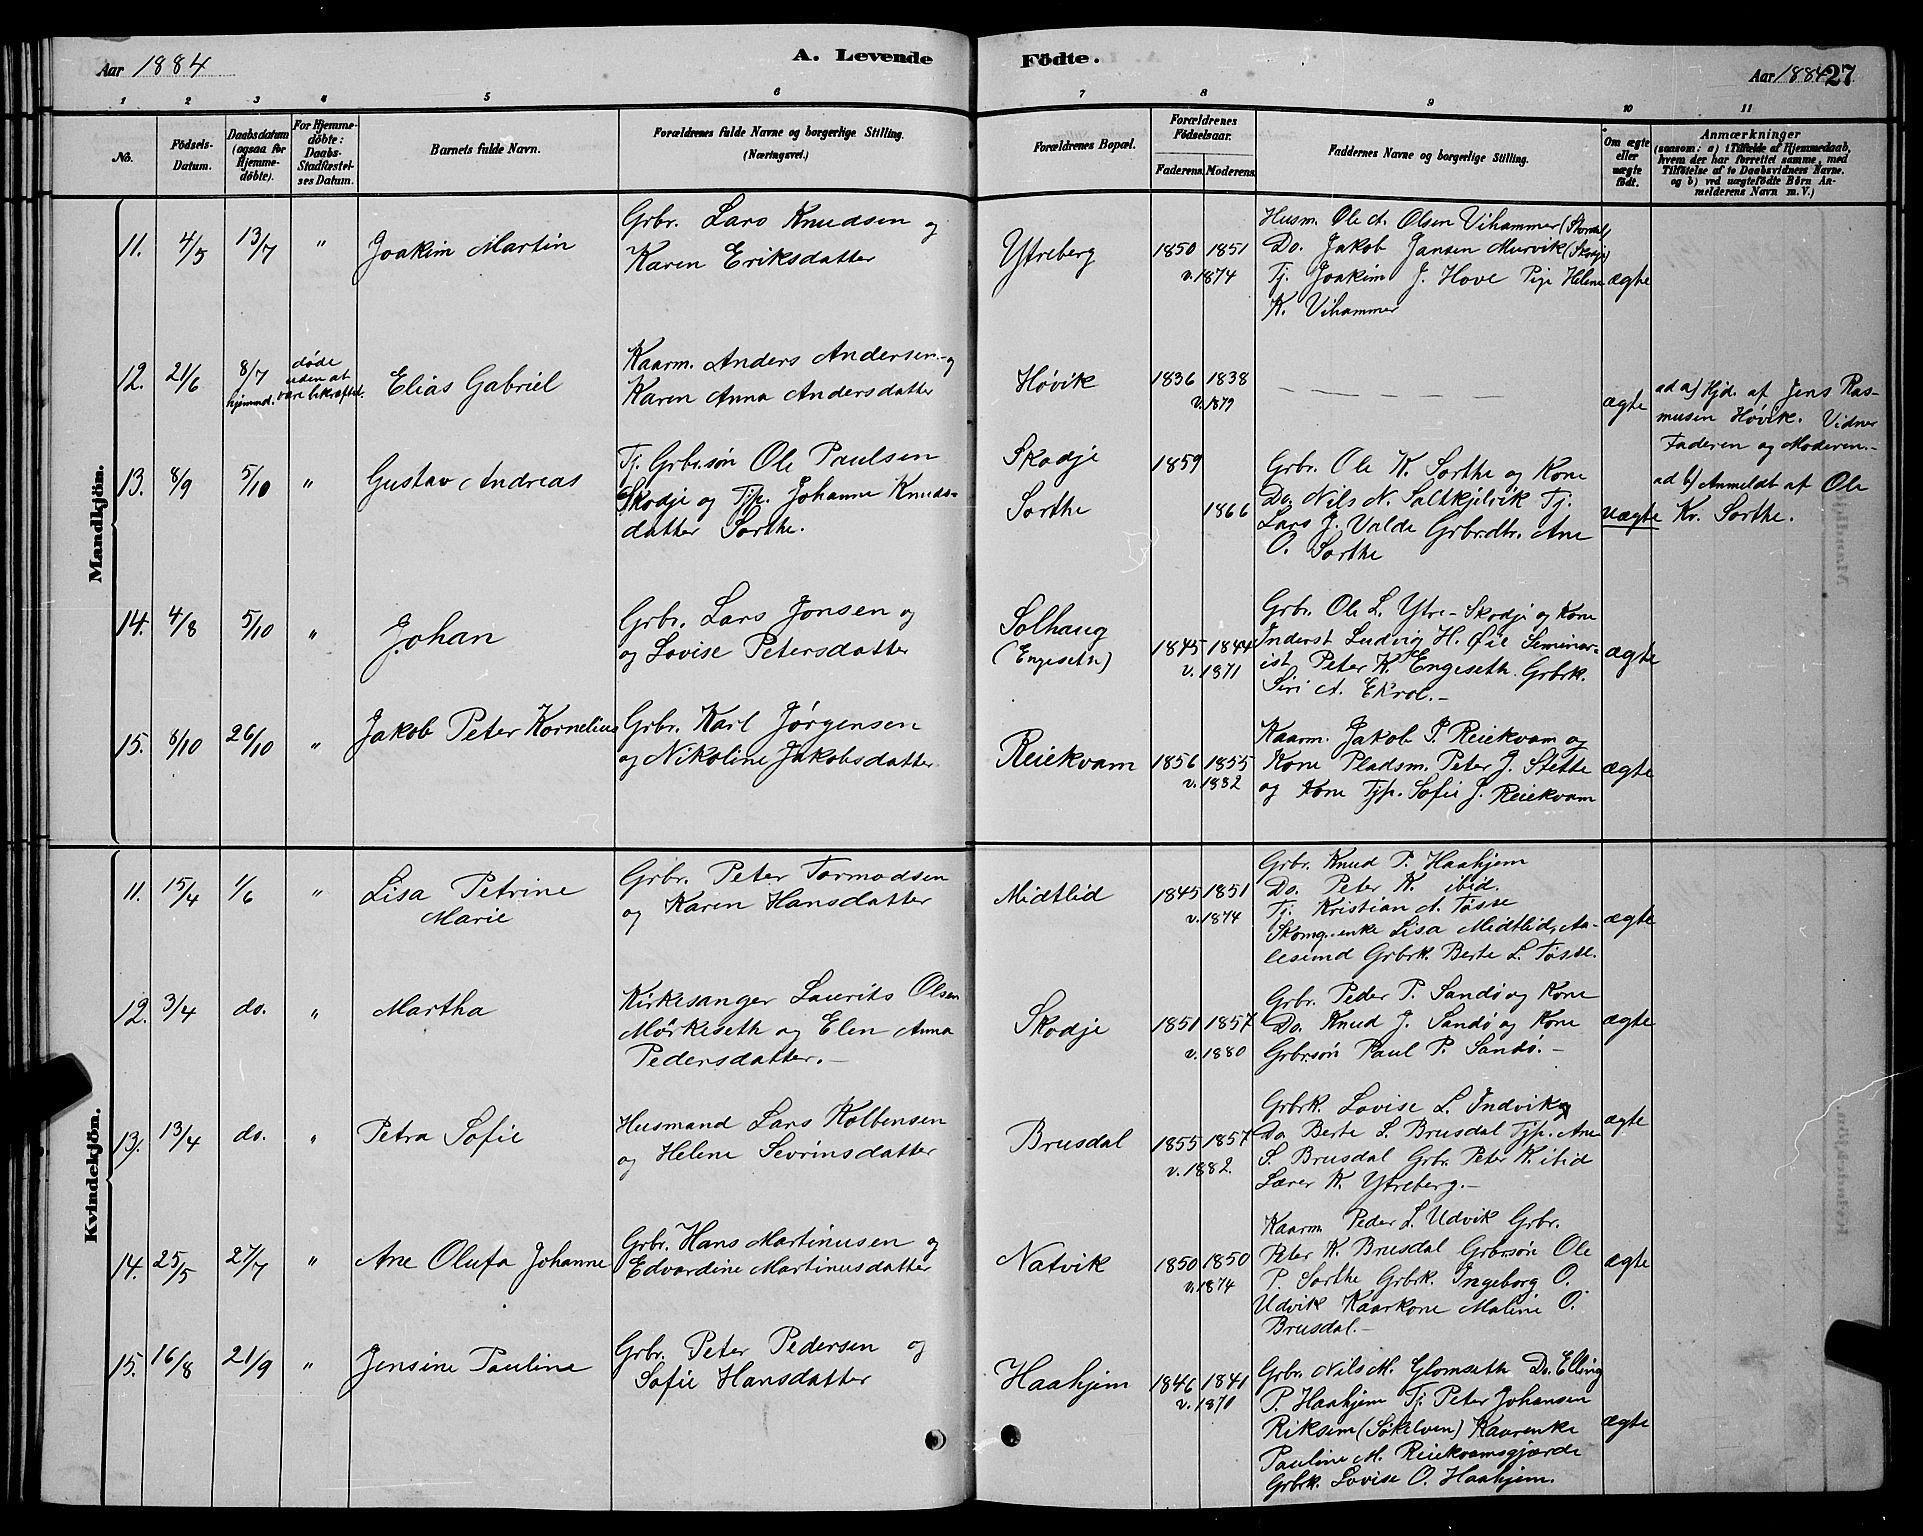 Aar 1884
A. Levende
Födte.
Aar 1884
27
1 2 3 4 5 6 7 8 9 10 11
No.
Födsels-
Datum.
Daabsdatum
(ogsaa for
Hjemme-
döbte).
For Hjemme-
döbte:
Daabs-
Stadfæstel-
ses Datum.
Barnets fulde Navn.
Forældrenes fulde Navne og borgerlige Stilling.
(Næringsvei.)
Forældrenes Bopæl.
Forældrenes
Födselsaar.
Faderens. Moderens.
Faddernes Navne og borgerlige Stilling.
Om ægte
eller
uægte
födt.
Anmærkninger
(saasom: a) i Tilfælde af Hjemmedaab,
hvem der har forrettet samme, med
Tilføielse af to Daabsvidners Navne.
og b) ved uægtefödte Börn An-
melderens Navn m. V.)
Mandkjön.
11. 4/5 13/7 " Joakim Martin
Grbr. Lars Knudsen og
Karen Eriksdatter
Ytreberg
1850 1851
v. 1874
Husm. Ole A. Olsen Vihammer (Stordal)
Do. Jakob Jansen Murvik (Skodje)
Tj. Joakim J. Hove Pige Helene
K. Vihammer
ægte
12. 21/6 8/7
hjemmd.
døde
uden at
være bekræftet.
Elias Gabriel
Kaarm. Anders Andersen og
Karen Anna Andersdatter
Høvik
1836 1838
v. 1879
— — — — —
ægte
ad a) Hjd. af Jens Ras-
musen Høvik. Vidner
Faderen og Moderen.-
13. 8/9 5/10 " Gustav Andreas
Tj. Grbr.søn Ole Paulsen
Skodje og Tjp. Johanne Knuds-
datter Sorthe.
Skodje
Sorthe
1859
1866
Grbr. Ole K. Sorthe og Kone
Do. Nils N. Saltkjelvik Tj.
Lars J. Valde Grbr.dtr. Ane
O. Sorthe
uægte
ad b) Anmeldt af Ole
Kr. Sorthe.
14. 4/8 5/10 " Johan
Grbr. Lars Jonsen og
og Lovise Petersdatter
Solhaug
(Engeseth)
1845 1844
v. 1871
Grbr. Ole L. Ytre-Skodje og Kone
Inderst Ludvig H. Øie Seminar-
ist Peter K. Engeseth Grbrk.
Siri A. Ekrol.-
ægte
15. 8/10 26/10 " Jakob Peter Kornelius
Grbr. Karl Jørgensen
og Nikoline Jakobsdatter
Reiekvam
1856 1855
v. 1882
Kaarm. Jakob P. Reiekvam og
Kone Pladsm. Peter J. Stette
og Kone Tjp. Sofie J. Reiekvam
ægte
Kvindekjön.
11. 15/4 1/6 " Lisa Petrine
Marie
Grbr. Peter Tormodsen
og Karen Hansdatter
Midtlid
1845 1851
v. 1874
Grbr. Knud P. Haahjem
Do. Peter K. ibid.
Tj. Kristian A. Tøsse
Skomg.enke Lisa Midtlid, Aa-
lesund Grbrk. Berte L. Tøsse.
ægte
12. 3/4 do. " Martha
Kirkesanger Laurits Olsen
Mörkeseth og Elen Anna
Pedersdatter.-
Skodje
1851 1857
v. 1880
Grbr. Peder P. Sandö og Kone
Do. Knud J. Sandö og Kone
Grbrsön Paul P. Sandö.-
ægte
13. 13/4 do. " Petra Sofie
Husmand Lars Kolbensen
og Helene Sevrinsdatter
Brusdal
1855 1857
v. 1882.
Grbrk. Lovise L. Indvik og
Do Berte L. Brusdal Tjp. Ane
S. Brusdal Grbr. Peter K. ibid
Lærer K. Ytreberg.-
ægte
14. 25/5 27/7 " Ane Olufa Johanne
Grbr. Hans Martinusen og
Edvardine Martinusdatter
Natvik
1850 1850
v. 1874
Kaarm. Peder L. Udvik Grbr.
Peter K. Brusdal Grbrsön Ole
P. Sorthe Grbrk. Ingeborg O.
Udvik Kaarkone Maline O.
Brusdal.-
ægte
15. 16/8 21/9 " Jensine Pauline
Grbr. Peter Pedersen og
Sofie Hansdatter
Haahjem
1846 1841
v. 1870
Grbr. Nils M. Glomseth Do. Elling
P. Haahjem Tj. Peter Johansen
Riksem (Sökelven) Kaarenke
Pauline M. Reiekvamsgjærde
Grbrk. Lovise O. Haahjem.
ægte